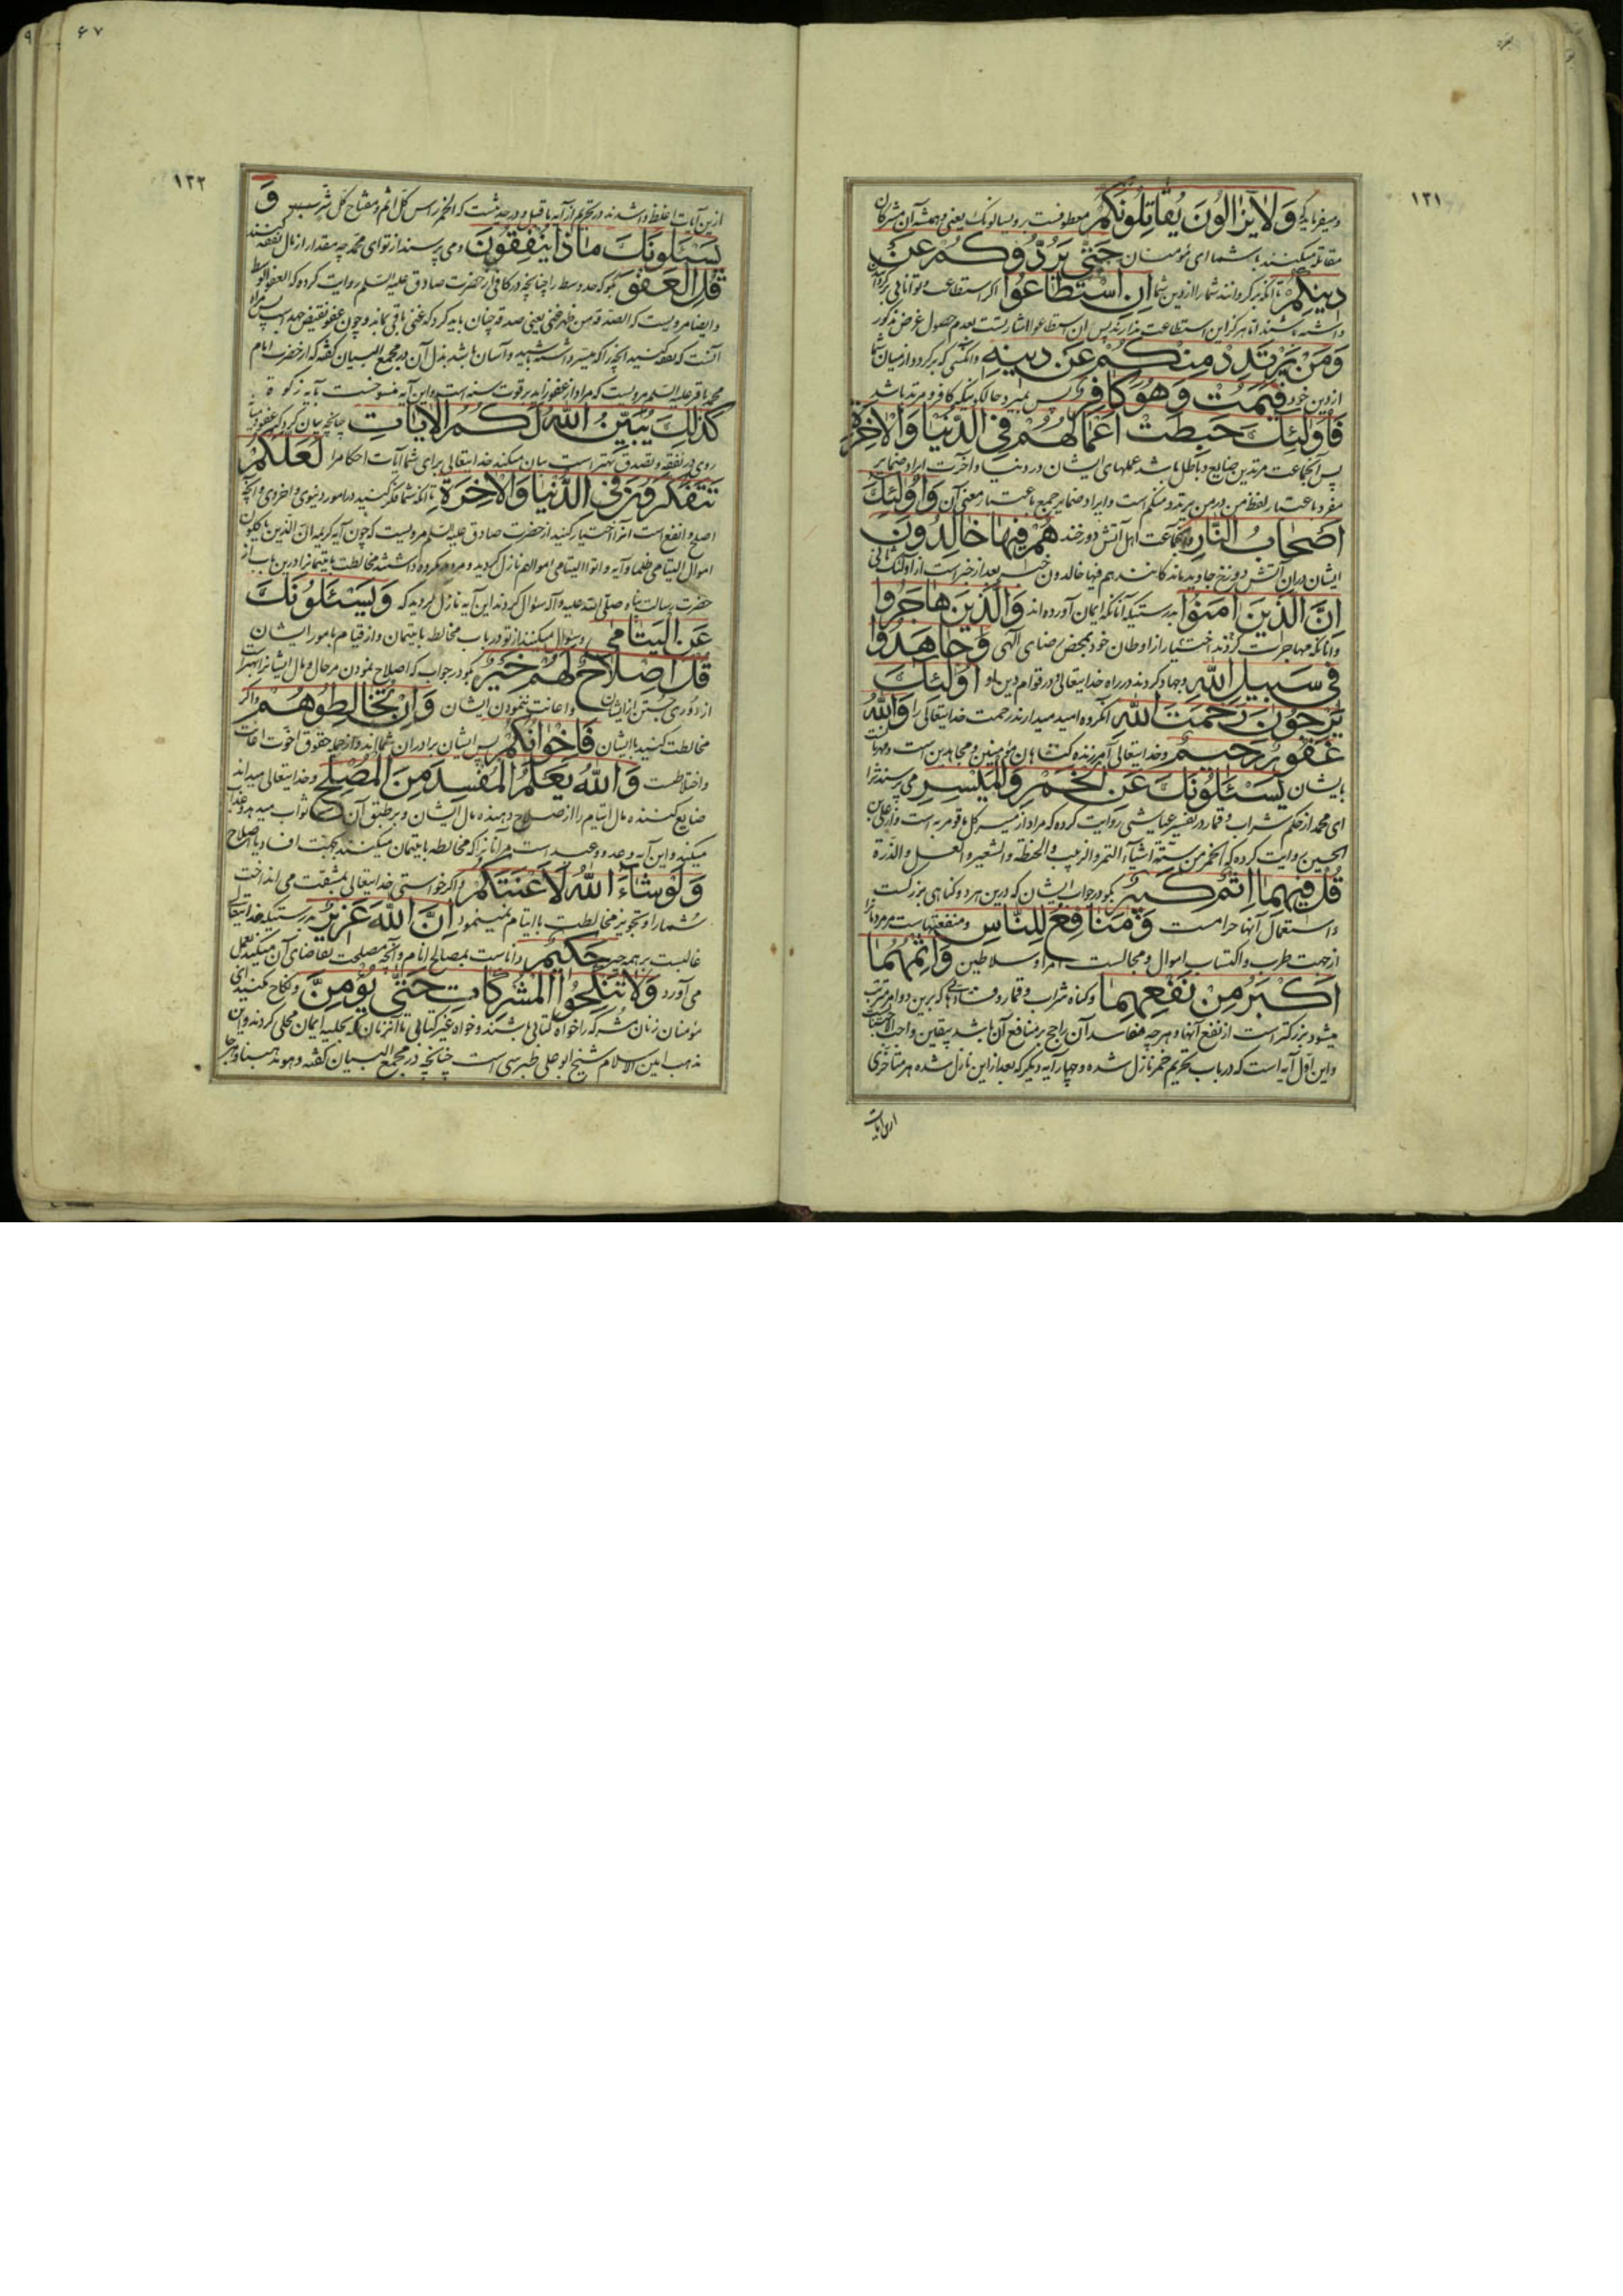 ۱۳۱
ومیفرماید که وَلَا یَزَالُونَ یُقَاتِلُونَکُمْ معطوفست بر ویسألونک یعنی وهمیشه آن مشرکان
مقاتله میکنند با شما ای مؤمنان حَتَّى یَرُدُّوکُمْ عَنْ
دِینِکُمْ تا آنکه برگردانند شما را از دین شما اِنِ اسْتَطَاعُوا اگر استطاعت و توانایی برگرداندن
داشته باشند اما هرگز این استطاعت ندارند پس ان استطاعوا اشارتست بعدم حصول غرض مذکور
وَمَنْ یَرْتَدِدْ مِنْکُمْ عَنْ دِینِهِ وآنکسی که برگردد از میان شما
از دین خود فَیَمُتْ وَهُوَ کَافِرٌ پس بمیرد حالکونیکه کافر و مرتد باشد
فَأُولَئِكَ حَبِطَتْ أَعْمَالُهُمْ فِی الدُّنْیَا وَالْآخِرَةِ
پس آنجماعت مرتدین ضایع و باطل باشد عملهای ایشان در دنیا و آخرت ایراد ضمایر
مفرد باعتبار لفظ من در من یرتدد منکم است وایراد ضمایر جمع باعتبار معنی آن وَأُولَئِكَ
أَصْحَابُ النَّارِ وآنجماعت اهل آتش دوزخند هُمْ فِیهَا خَالِدُونَ
ایشان دران آتش دوزخ جاوید ماندگانند هم فیها خالدون خبر بعد از خبر است از اولئک ثانی
اِنَّ الَّذِینَ آمَنُوا بدرستیکه آنانکه ایمان آورده اند وَالَّذِینَ هَاجَرُوا
وآنانکه مهاجرت کردند اختیار از اوطان خود بمحض رضای الهی وَجَاهَدُوا
فِی سَبِیلِ اللَّهِ وجهاد کردند در راه خدایتعالی و در قوام دین او أُولَئِكَ
یَرْجُونَ رَحْمَتَ اللَّهِ آنگروه امید میدارند رحمت خدایتعالی را وَاللَّهُ
غَفُورٌ رَحِیمٌ وخدایتعالی آمرزنده گناهان مؤمنین و مجاهدین است ومهربانست
بایشان یَسْئَلُونَكَ عَنِ الْخَمْرِ وَالْمَیْسِرِ می پرسند ترا
ای محمد از حکم شراب و قمار در تفسیر عیاشی روایت کرده که مراد از میسر کل ما قومر به است واز علی بن
الحسین روایت کرده که الخمر من ستة اشیآء التمر والزبیب والحنطة والشعیر والعسل والذرة
قُلْ فِیهِمَا اِثْمٌ کَبِیرٌ بگو در جواب ایشان که درین هر دو گناهی بزرگست
واستعمال آنها حرامست وَمَنَافِعُ لِلنَّاسِ ومنفعتهاست مردمانرا
از جهت طرب واکتساب اموال و مجالست امرا و سلاطین وَاِثْمُهُمَا
اَکْبَرُ مِنْ نَفْعِهِمَا وگناه شراب و قمار و فسادی که برین دو امر مترتب
میشود بزرگتر است از نفع آنها وهرچه مفاسد آن راجح بر منافع آن باشد بیقین واجب الاجتناب
واین اول آیه است که در باب تحریم خمر نازل شده وچهار آیه دیگر که بعد از این نازل شده هر متأخری
ازین آیات
۶۷
۱۳۲
ازین آیات اغلظ واشد ند در تحریم از آیه ماقبل و در حدیثست که الخمر رأس کل اثم ومفتاح کل شر وَ
یَسْئَلُونَكَ مَاذَا یُنْفِقُونَ ومی پرسند از تو ای محمد چه مقدار از مال نفقه کنند
قُلِ الْعَفْوَ بگو که حد وسط را چنانچه در کافی از حضرت صادق علیه السلم روایت کرده که العفو الوسط
وایضا مرویست که الصدقة من ظهر غنی یعنی صدقه چنان باید کرد که غنی باقی بماند وچون عفو نقیض جهد است پس مراد
آنست که نفقه کنید آنچه را که میسر داشته باشید وآسان باشد بذل آن در مجمع البیان گفته که از حضرت امام
محمد باقر علیه السلم مرویست که مراد از عفو زاید بر قوت سنه است واین آیه منسوخست بآیه زکوة
کَذَلِكَ یُبَیِّنُ اللَّهُ لَکُمُ الْآیَاتِ چنانچه بیان کرد که عفو و میانه
روی در نفقه و تصدق بهتر است بیان میکند خدایتعالی برای شما آیات احکام را لَعَلَّکُمْ
تَتَفَکَّرُونَ فِی الدُّنْیَا وَالْآخِرَةِ تا آنکه شما فکر کنید در امور دنیوی و اخروی وآنچه
اصلح وانفع است آنرا اختیار کنید از حضرت صادق علیه السلم مرویست که چون آیه کریمه ان الذین یأکلون
اموال الیتامی ظلما وآیه وآتوا الیتامی اموالهم نازل گردید ومردم مکروه داشتند مخالطت با یتیمانرا درین باب از
حضرت رسالت پناه صلی الله علیه وآله سؤال کردند این آیه نازل گردید که وَیَسْئَلُونَكَ
عَنِ الْیَتَامَى وسؤال میکنند از تو در باب مخالطه با یتیمان واز قیام بامور ایشان
قُلْ اِصْلَاحٌ لَهُمْ خَیْرٌ بگو در جواب که اصلاح نمودن مر حال و مال ایشانرا بهتر است
از دوری جستن از ایشان واعانت ننمودن ایشان وَاِنْ تُخَالِطُوهُمْ واگر
مخالطت کنید با ایشان فَاِخْوَانُکُمْ پس ایشان برادران شمااند واز جمله حقوق اخوت اعانت
واختلاطست وَاللَّهُ یَعْلَمُ الْمُفْسِدَ مِنَ الْمُصْلِحِ وخدایتعالی میداند
ضایع کننده مال ایتام را از صلاح دهنده مال ایشان وبر طبق آن ثواب میدهد وعذاب
میکند واین آیه وعد و وعید است مر آنانرا که مخالطه با یتیمان میکنند بجهت افساد یا اصلاح
وَلَوْ شَاءَ اللَّهُ لَأَعْنَتَکُمْ واگر خواستی خدایتعالی بمشقت می انداخت
شما را وتجویز مخالطت با ایتام نمینمود اِنَّ اللَّهَ عَزِیزٌ بدرستیکه خدایتعالی
غالبست بر همه چیز حَکِیمٌ داناست بمصالح انام وآنچه مصلحت تقاضای آن میکند بعمل
می آورد وَلَا تَنْکِحُوا الْمُشْرِکَاتِ حَتَّى یُؤْمِنَّ ونکاح مکنید ای
مؤمنان زنان مشرکه را خواه کتابی باشند وخواه غیر کتابی تا آنزمان که بحلیه ایمان محلی گردند واین
مذهب امین الاسلام شیخ ابو علی طبرسی است چنانچه در مجمع البیان گفته وهو مذهبنا